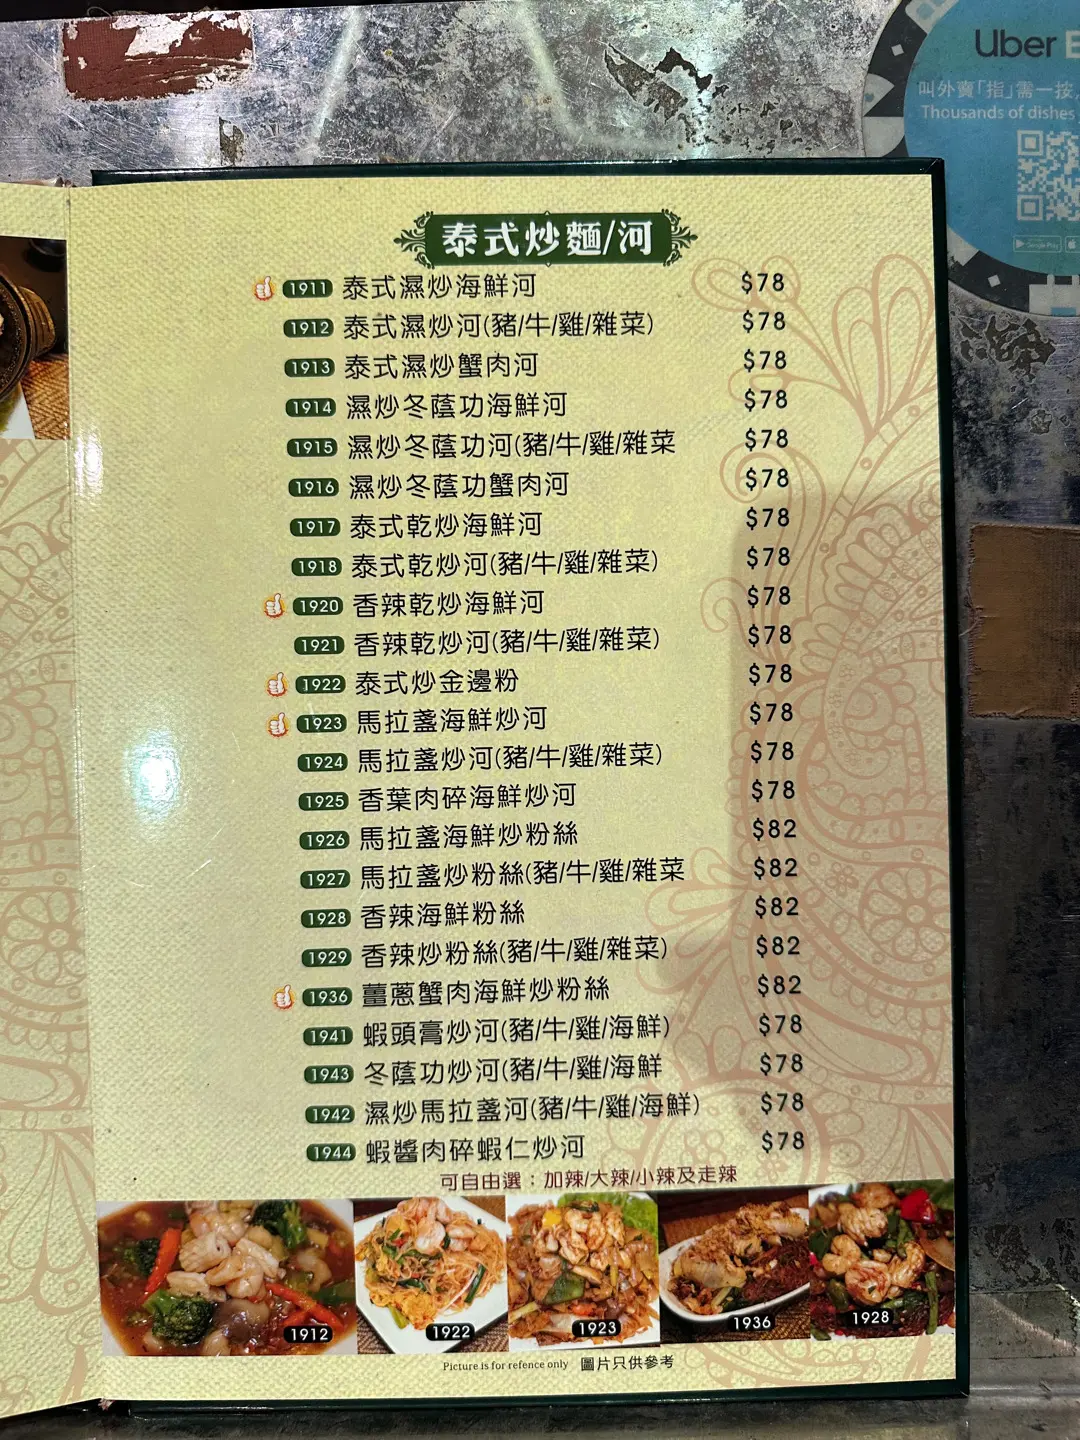 Uber E
叫外賣「指」需一按,
Thousands of dishes
Google Play
泰式炒麵/河
1911 泰式濕炒海鮮河 $78
1912 泰式濕炒河(豬/牛/雞/雜菜) $78
1913 泰式濕炒蟹肉河 $78
1914 濕炒冬蔭功海鮮河 $78
1915 濕炒冬蔭功河(豬/牛/雞/雜菜 $78
1916 濕炒冬蔭功蟹肉河 $78
1917 泰式乾炒海鮮河 $78
1918 泰式乾炒河(豬/牛/雞/雜菜) $78
1920 香辣乾炒海鮮河 $78
1921 香辣乾炒河(豬/牛/雞/雜菜) $78
1922 泰式炒金邊粉 $78
1923 馬拉盞海鮮炒河 $78
1924 馬拉盞炒河(豬/牛/雞/雜菜) $78
1925 香葉肉碎海鮮炒河 $78
1926 馬拉盞海鮮炒粉絲 $82
1927 馬拉盞炒粉絲(豬/牛/雞/雜菜 $82
1928 香辣海鮮粉絲 $82
1929 香辣炒粉絲(豬/牛/雞/雜菜) $82
1936 薑蔥蟹肉海鮮炒粉絲 $82
1941 蝦頭膏炒河(豬/牛/雞/海鮮) $78
1943 冬蔭功炒河(豬/牛/雞/海鮮 $78
1942 濕炒馬拉盞河(豬/牛/雞/海鮮) $78
1944 蝦醬肉碎蝦仁炒河 $78
可自由選：加辣/大辣/小辣及走辣
1912
1922
1923
1936
1928
Picture is for refence only 圖片只供參考